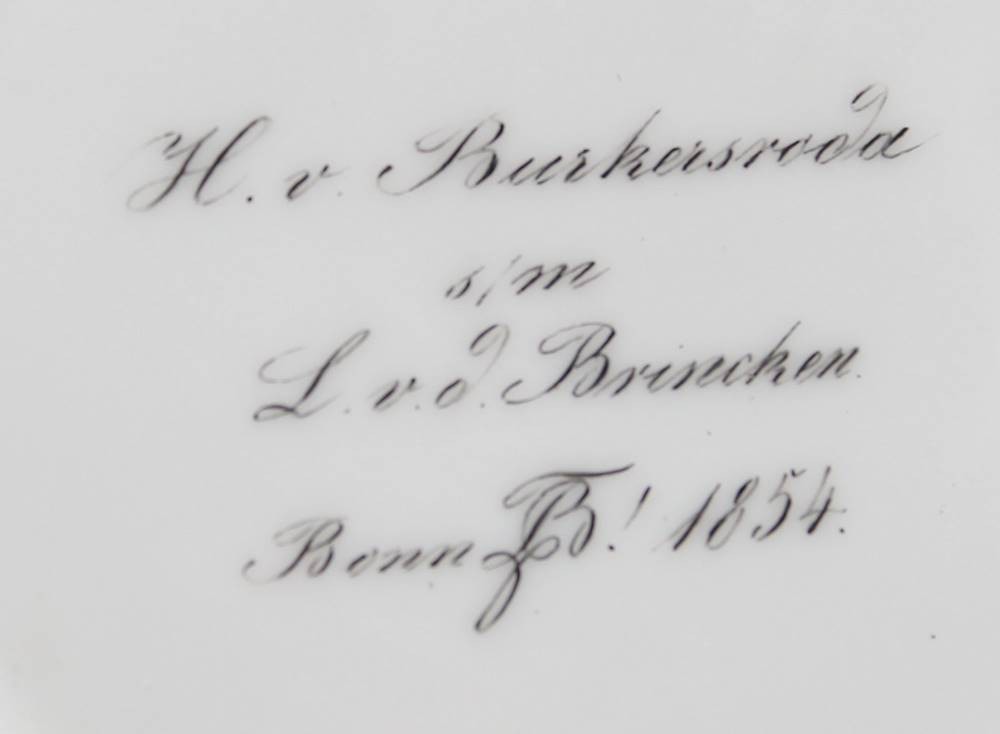 H. v. Burkersroda
s/m
L. v. d. Brincken.
Bonn ! 1854.